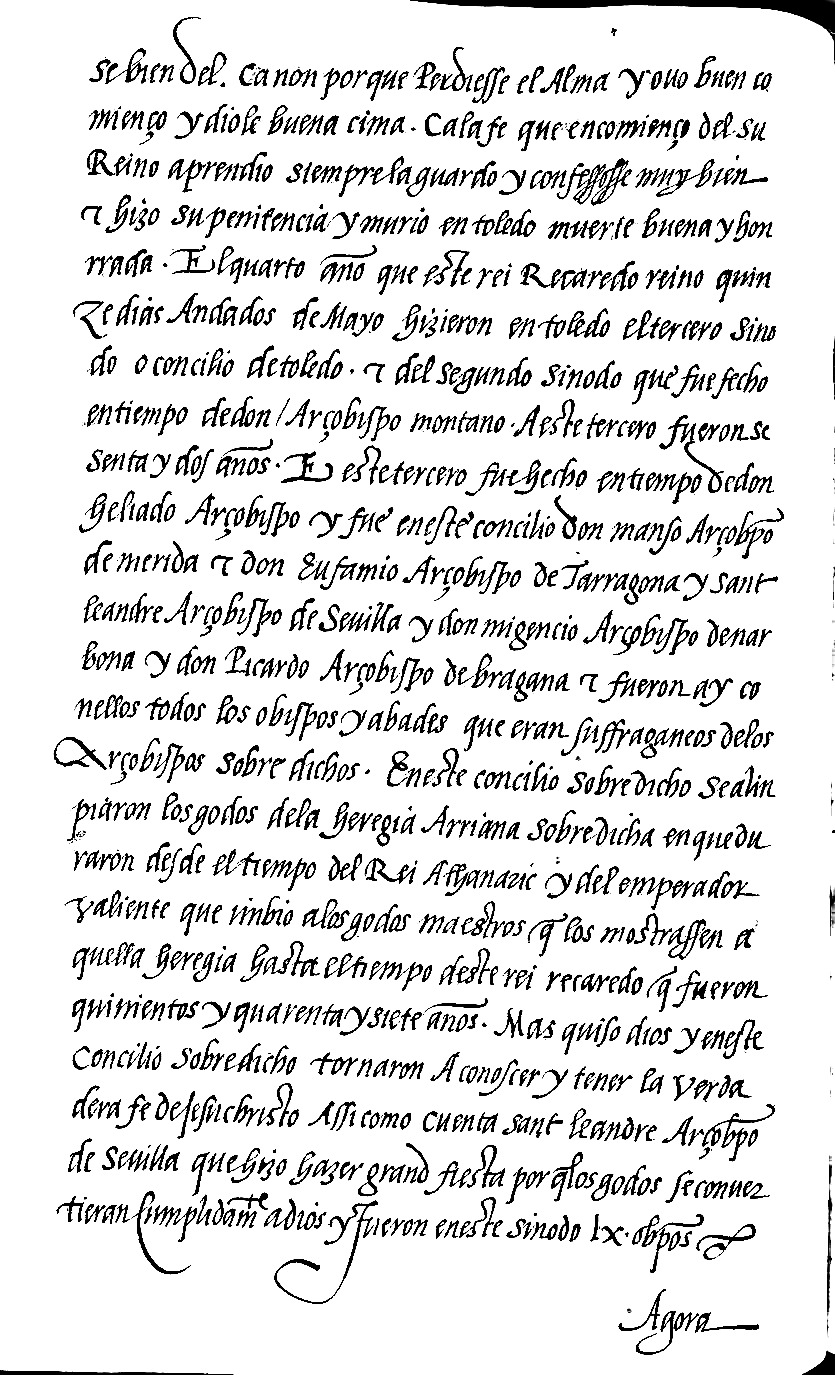 se bien del. Ca non porque Perdiesse el Alma y ouo buen co
mienço y diole buena cima. Ca la fe que en comienço del su
Reino aprendio siempre la guardo y confessosse muy bien
⁊ hizo su penitencia y murio en toledo muerte buena y hon
rrada. El quarto año que este rei Recaredo reino quin
Ze dias Andados de Mayo hizieron en toledo el tercero Sino
do o concilio de toledo. ⁊ del segundo Sinodo que fue fecho
en tiempo de don / Arçobispo montano. A este tercero fueron se
senta y dos años. E este tercero fue hecho en tiempo de don
heliado Arçobispo y fue en este concilio don manso Arçobpo
de merida ⁊ don Eufamio Arçobispo de Tarragona y sant
leandre Arçobispo de Sevilla y don migencio Arçobispo de nar
bona y don Picardo Arçobispo de bragana ⁊ fueron ay co
nellos todos los obispos y abades que eran suffraganeos de los
Arçobispos sobre dichos. En este concilio sobredicho se alin
piaron los godos de la heregia Arriana sobredicha en que du
raron desde el tiempo del Rei Athanaric y del emperador
valiente que imbio a los godos maestros q̃ los mostrassen a
quella heregia hasta el tiempo deste rei recaredo q̃ fueron
quinientos y quarenta y siete años. Mas quiso dios y en este
Concilio sobredicho tornaron A conoscer y tener la Verda
dera fe de Jesuchristo Assi como cuenta sant leandre Arçobpo
de Sevilla que hizo hazer grand fiesta por q̃ los godos se conuer
tieran Cumplidamte a dios y fueron en este sinodo lx. obpos
Agora